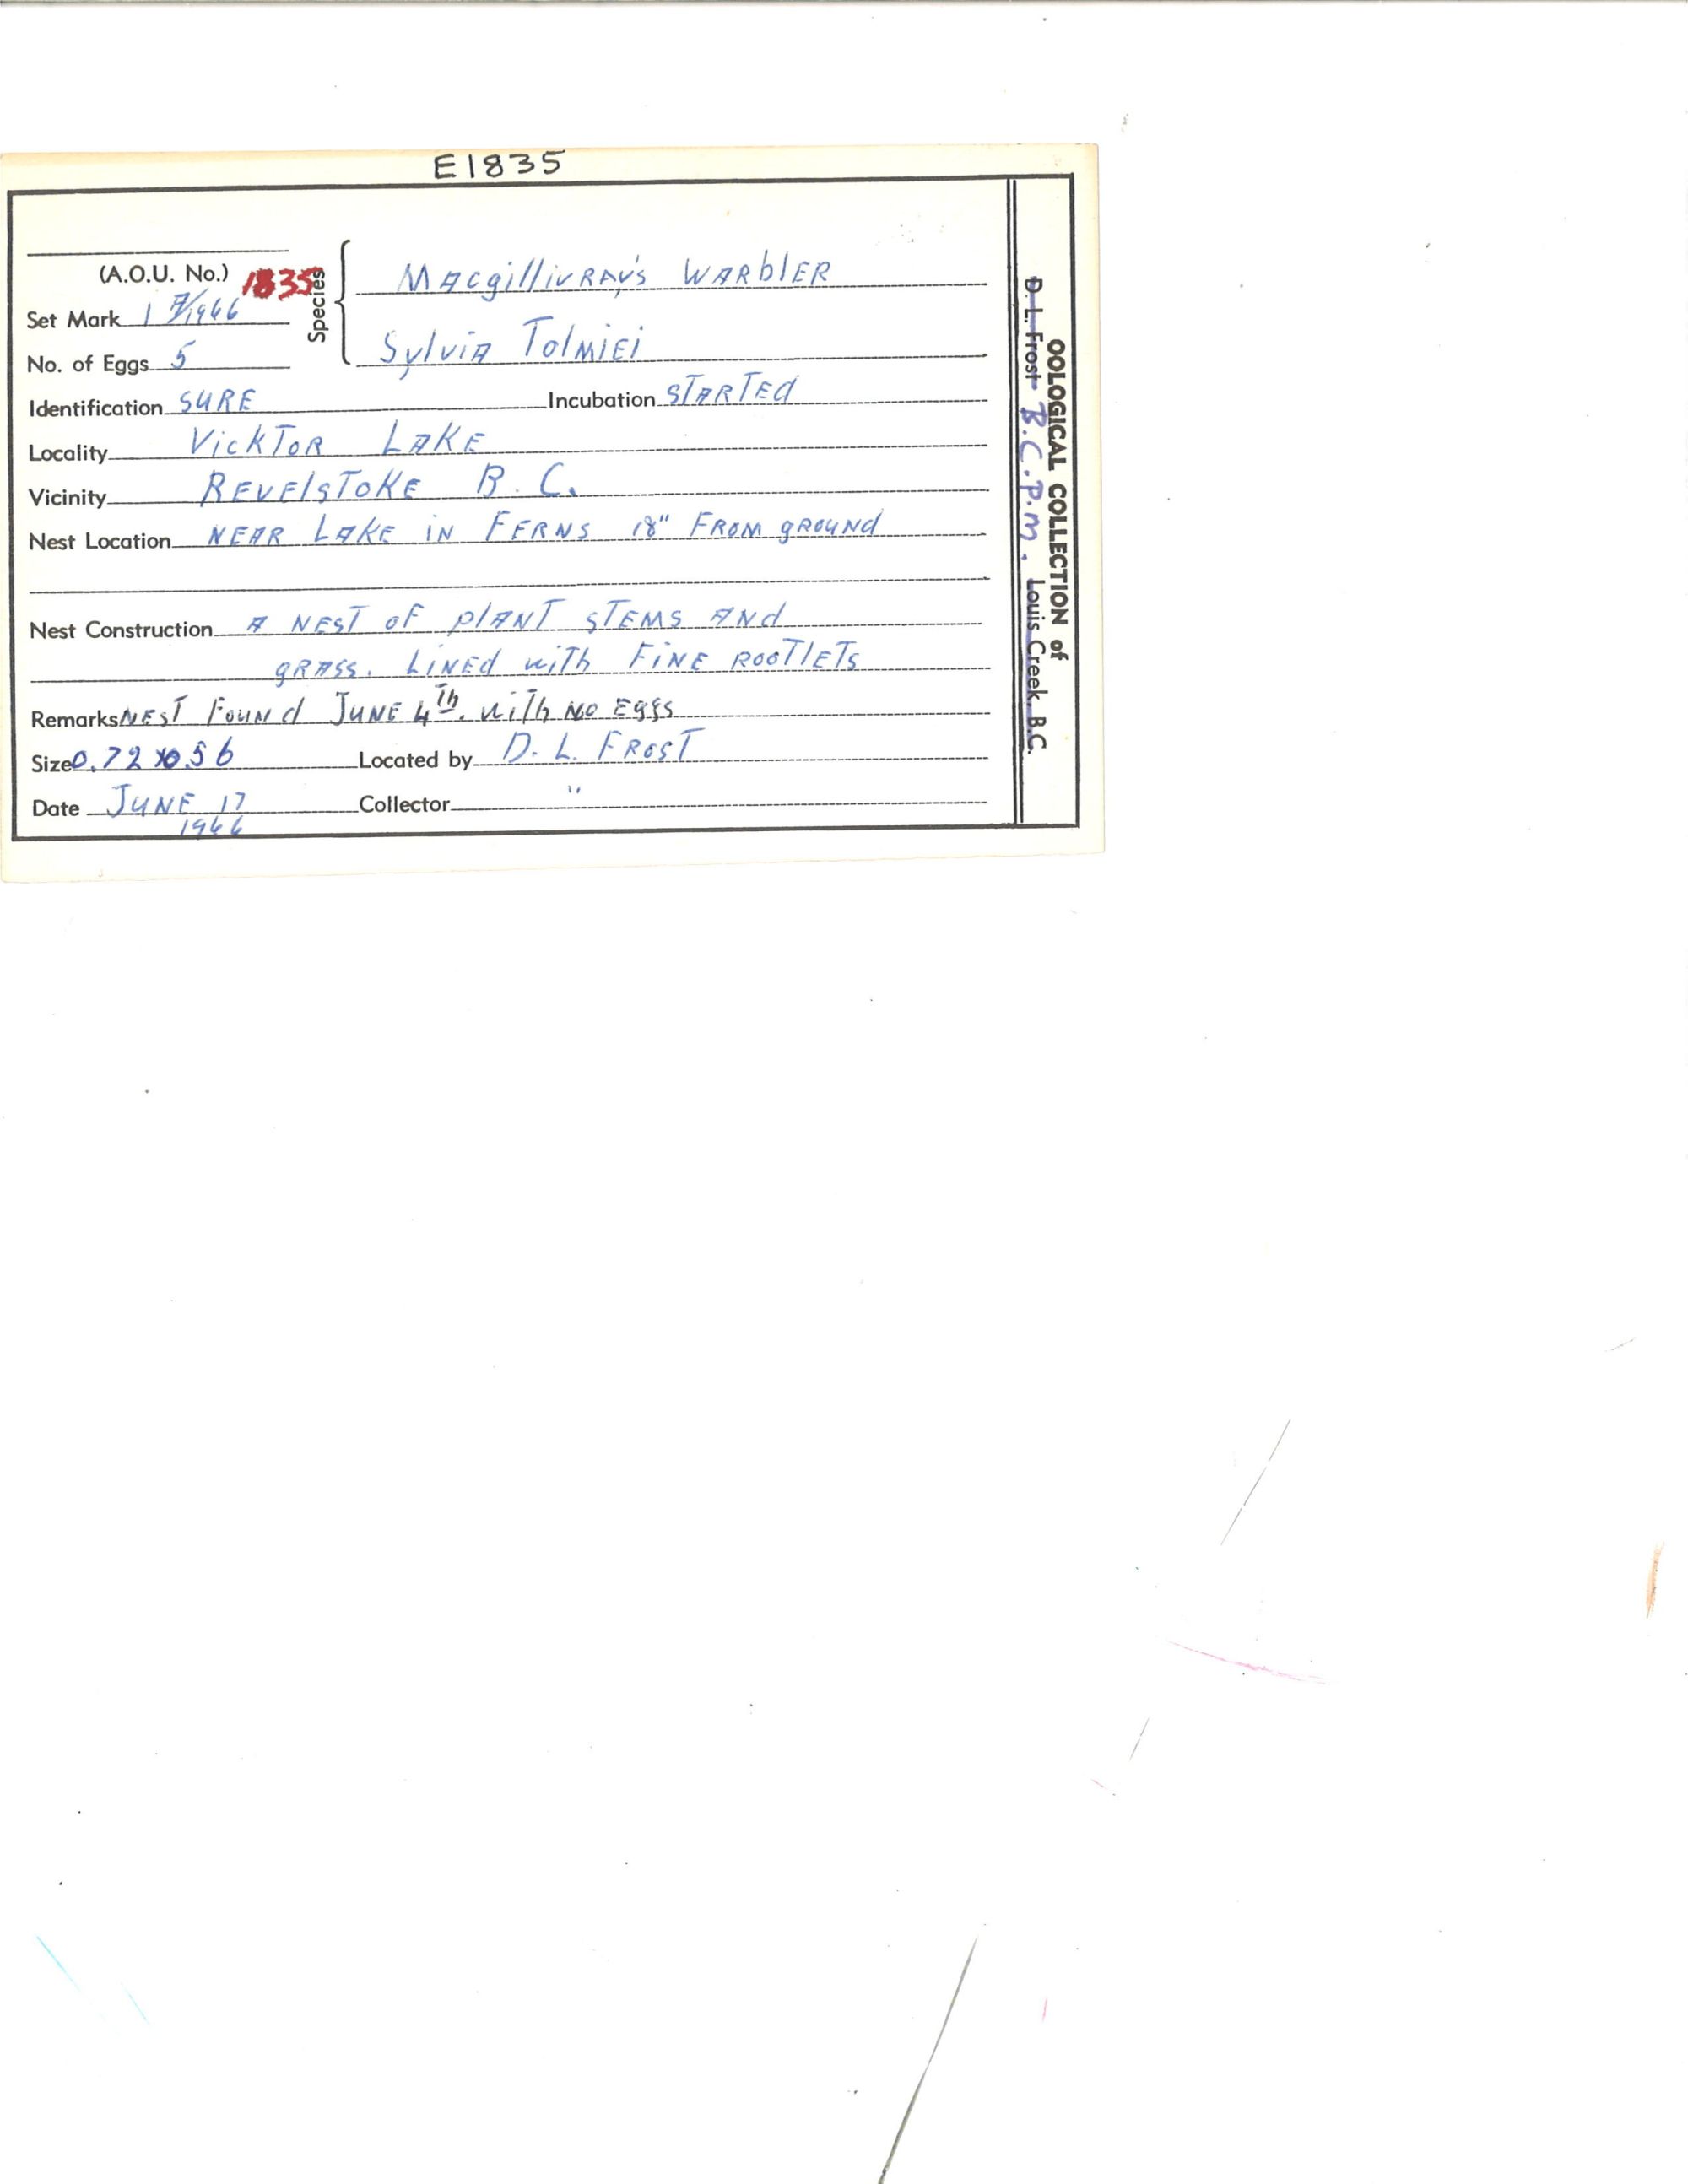 E1835
(A.O.U. No.) 1835
Species { Macgillivray's Warbler
Set Mark 1 7/1966
Sylvia Tolmiei
No. of Eggs 5
Identification SURE Incubation STARTEd
Locality VickTor LAKE
Vicinity REVElsToKE B.C.
Nest Location NEAR LAKE iN FERNS 18" FROM gROUNd
Nest Construction A NEST oF plANT STEMS ANd
gRASS. LiNEd wiTh FiNE RooTlETs
Remarks NEST FouNd JuNE 4Th. wiTh No Eggs
Size 0.72 x 0.56 Located by D. L. FRosT
Date JuNE 17 Collector "
1966
OOLOGICAL COLLECTION of
D. L. Frost B.C.P.M. Louis Creek, B.C.